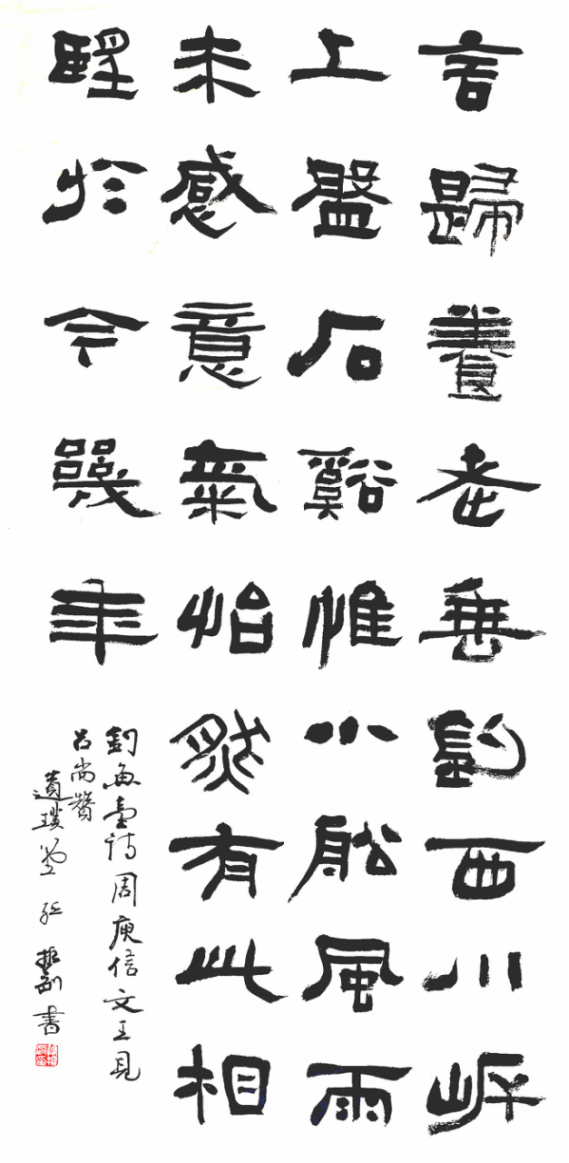 言歸養老垂釣西川岸
上盤石谿惟小船風雨
未感意氣怡然有此相
望於今幾年
釣魚臺詩周庾信文王見
呂尚贊
遺璞書